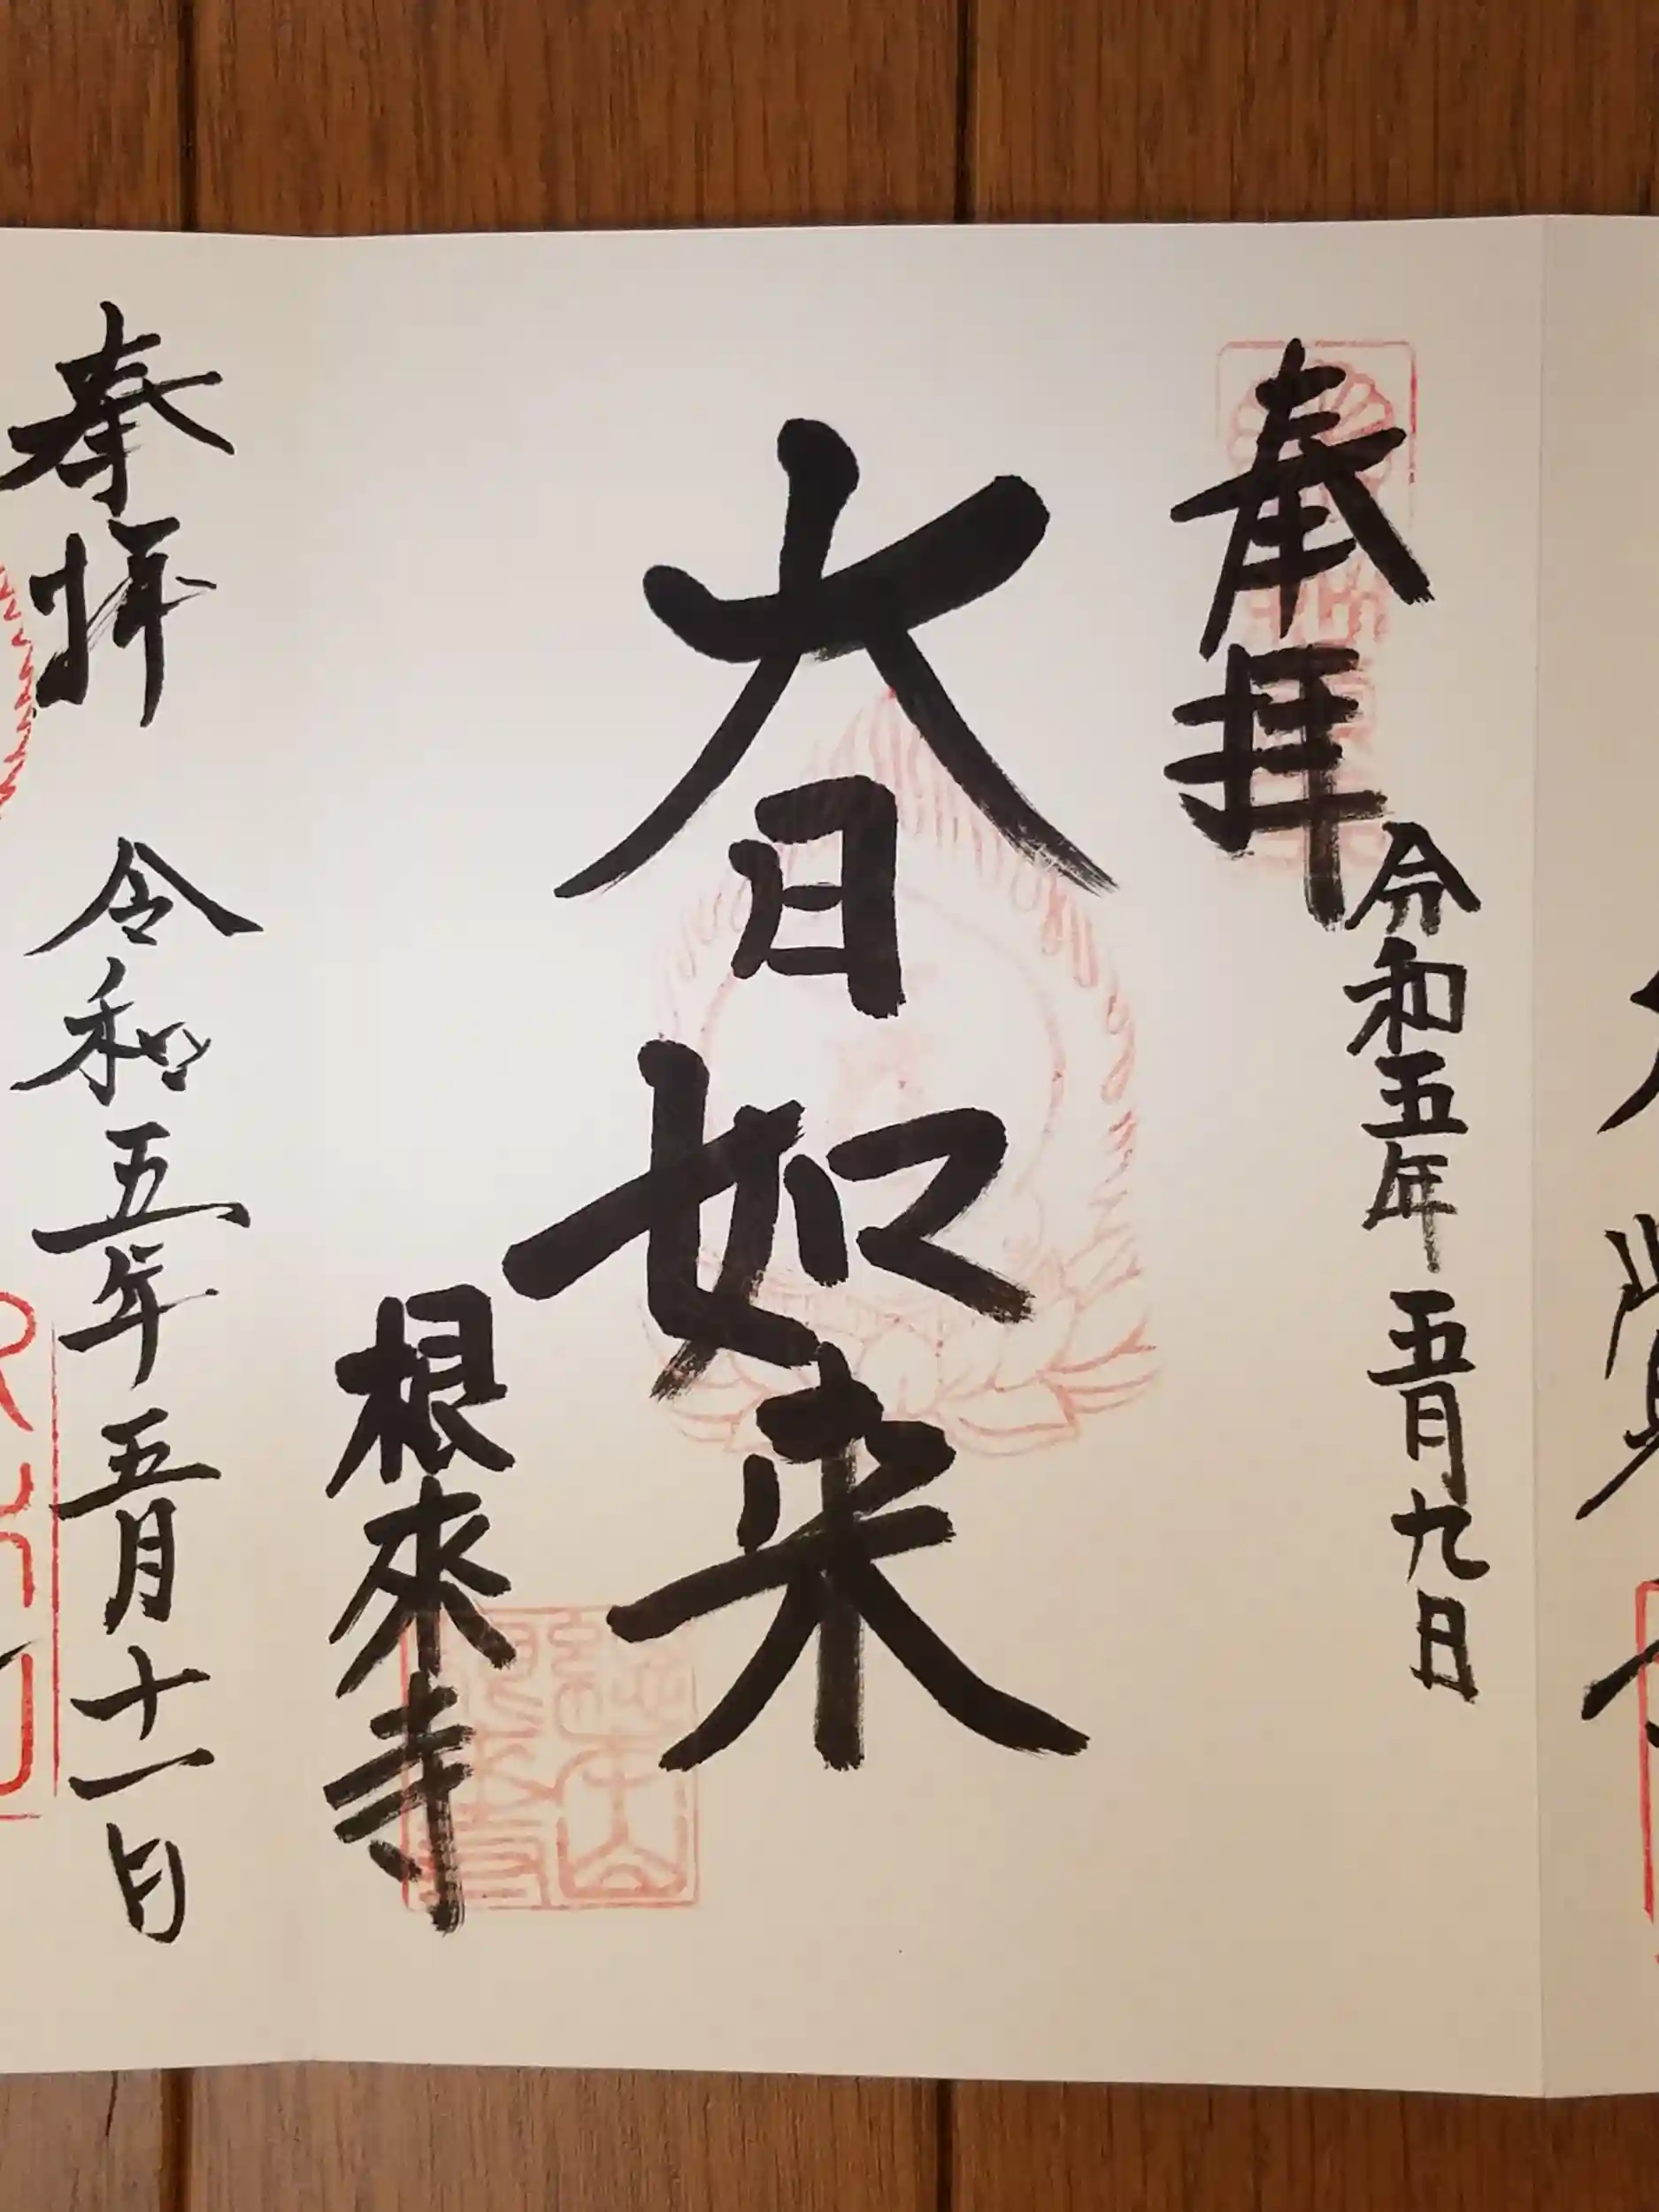 奉拝
令和五年 五月九日
大日如来
根來寺
奉拝
令和五年 五月十一日